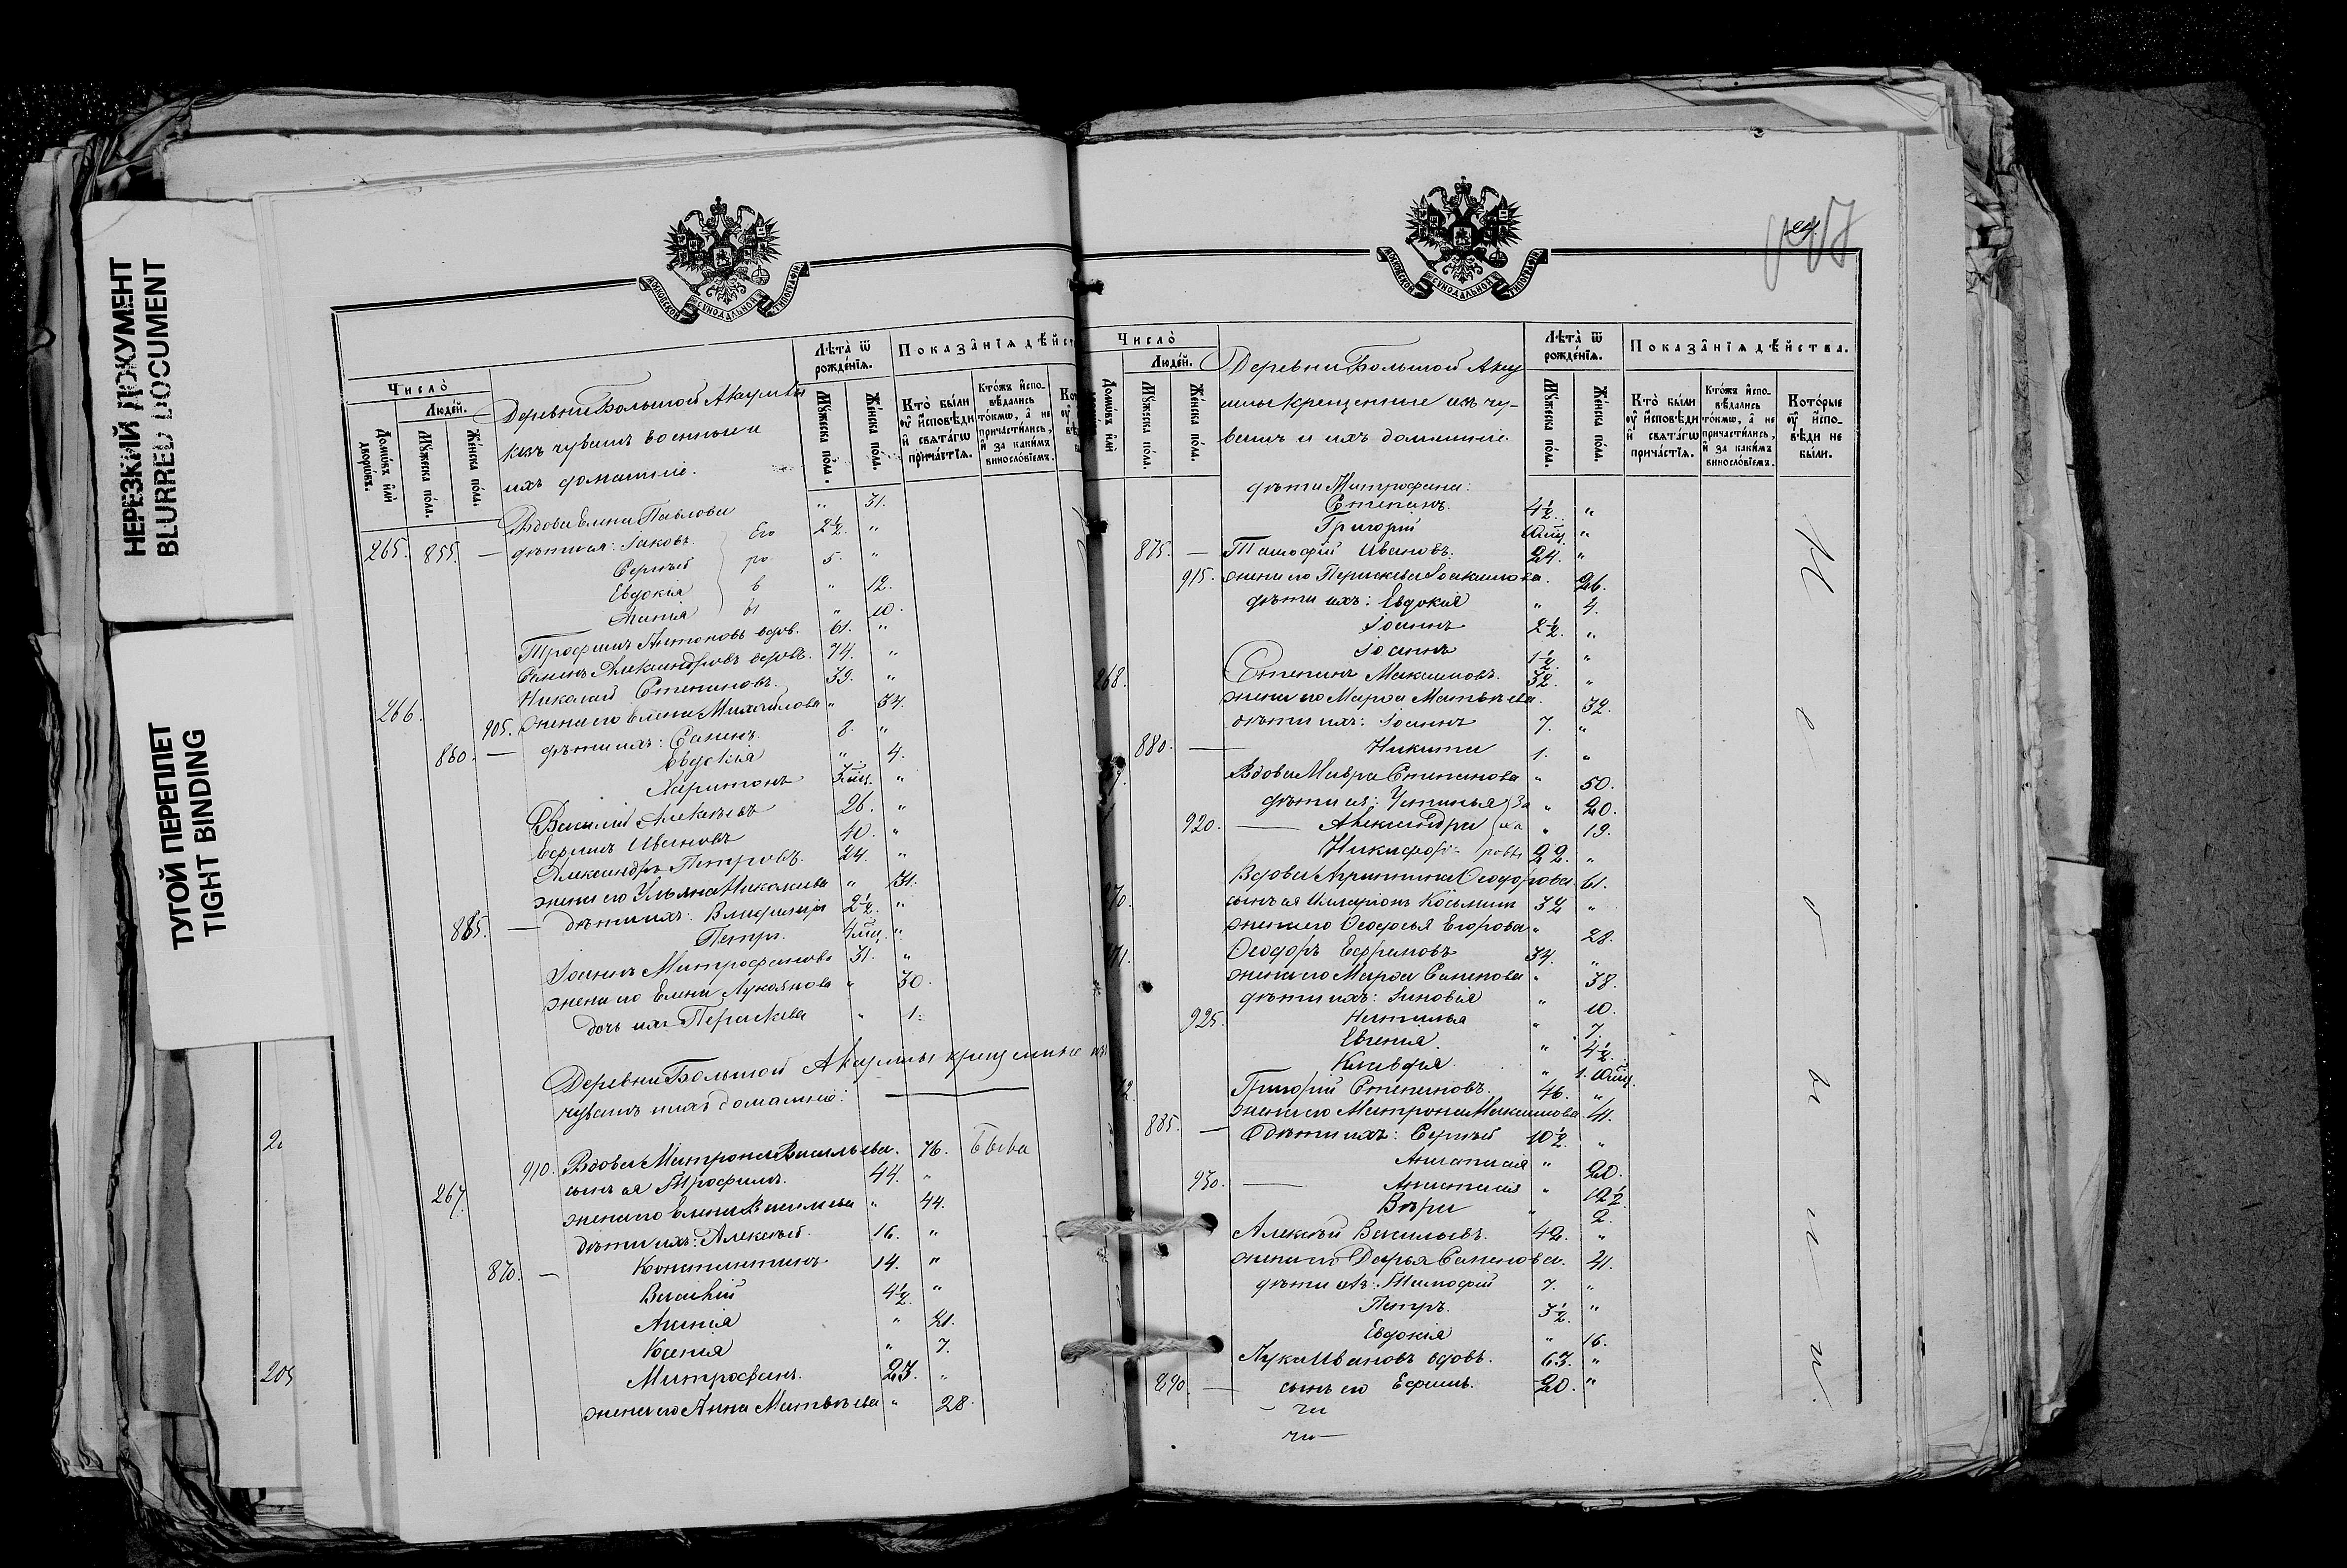 НЕРЕЗКИЙ ДОКУМЕНТ
BLURRED DOCUMENT
ТУГОЙ ПЕРЕПЛЕТ
TIGHT BINDING
МОСКОВСКОЙ СУНОДАЛЬНОЙ ТИПОГРАФІИ
Число̀
Людей.
Домѡвъ или дворѡвъ.
Мꙋжеска пола.
Женска пола.
Деревни Большой Акулевы
изъ чувашъ военные и
ихъ домашніе.
Лѣта̀ ѿ рожденїѧ.
Мꙋжеска пола.
Женска пола.
Показанїѧ дѣйст
Кто̀ были оу̑ исповѣди и свѧтагѡ причастїѧ.
Ктожъ исповѣдались токмѡ, а не причастились, и за какимъ винословїемъ.
Вдова Елена Павлова " 31.
265. 855. — дѣти ея: Іаковъ. 2½. "
Сергѣй 5. "
Евдокія " 12.
" 10.
Трофимъ Антоновъ вдов. 61. "
Семенъ Александровъ вдовъ. 74. "
266. Николай Степановъ. 39. "
905. жена его Елена Михайлова " 34.
860. — дѣти ихъ: Семенъ. 8. "
Евдокія " 4.
Харитонъ 3 мѣц. "
Василій Алексѣевъ 26. "
Ефимъ Ивановъ 40. "
Александръ Петровъ. 24. "
жена его Ульяна Николаева " 31.
865. — дѣти ихъ: Владиміръ 2½. "
Петръ. 4 мѣц. "
Іоаннъ Митрофановъ 31. "
жена его Елена Лукоянова " 30.
дочь ихъ Параскева " 1.
Деревни Большой Акулевы крещеные изъ
чувашъ и ихъ домашніе:
910. Вдова Матрона Васильева. 76. Быва
267. сынъ ея Трофимъ. 44. "
жена его Елена Васильева " 44.
дѣти ихъ: Алексѣй. 16. "
870. — Константинъ 14. "
Василій 4½. "
" 21.
Ксенія " 7.
Митрофанъ. 23. "
жена его Анна Матвѣева " 28.
МОСКОВСКОЙ СУНОДАЛЬНОЙ ТИПОГРАФІИ
24.
Число̀
Людей.
Домѡвъ или
Мꙋжеска пола.
Женска пола.
Деревни Большой Аку
левы крещенные изъ чу-
вашъ и ихъ домашніе.
Лѣта̀ ѿ рожденїѧ.
Мꙋжеска пола.
Женска пола.
Показанїѧ дѣйства.
Кто̀ были оу̑ исповѣди и свѧтагѡ причастїѧ.
Ктожъ исповѣдались токмѡ, а не причастились, и за какимъ винословїемъ.
Которые оу̑ исповѣди не были.
дѣти Митрофана:
Степанъ. 4½. "
Григорій 10 мѣц. "
875. — Тимофій Ивановъ. 24. "
915. жена его Параскева Іоакимова. 26.
дѣти ихъ: Евдокія " 4.
Іоаннъ 2½. "
Іоаннъ 1½. "
268. Степанъ Максимовъ. 32. "
жена его Марѳа Матвѣева. 32.
дѣти ихъ: Іоаннъ 7. "
880. — Никита 1. "
Вдова Мавра Степанова " 50.
дѣти ея: Устинья " 20.
920. — Александра " 19.
Никифоръ 22. "
270. Вдова Агрипина Ѳеодорова. 61.
сынъ ея Иларіонъ Косьминъ 32 "
жена его Ѳеодосья Егорова " 28.
271. Ѳеодоръ Ефремовъ 34. "
жена его Марѳа Семенова " 38.
дѣти ихъ: Зиновія " 10.
925. Наталья " 7.
Евгенія. " 4½.
Клавдія. " 1. 10 мѣц.
Григорій Степановъ. 46. "
жена его Матрона Максимова. 41.
885. — дѣти ихъ: Сергѣй 10½. "
Анастасія " 20.
930. — Анастасія " 12½
Вѣра " 2.
Алексѣй Васильевъ. 42. "
жена его Дарья Семенова. 41.
дѣти ихъ: Тимофій 7. "
Петръ. 3½. "
Евдокія " 16.
Лука Ивановъ вдовъ. 63. "
890. — сынъ его Ефимъ. 20. "